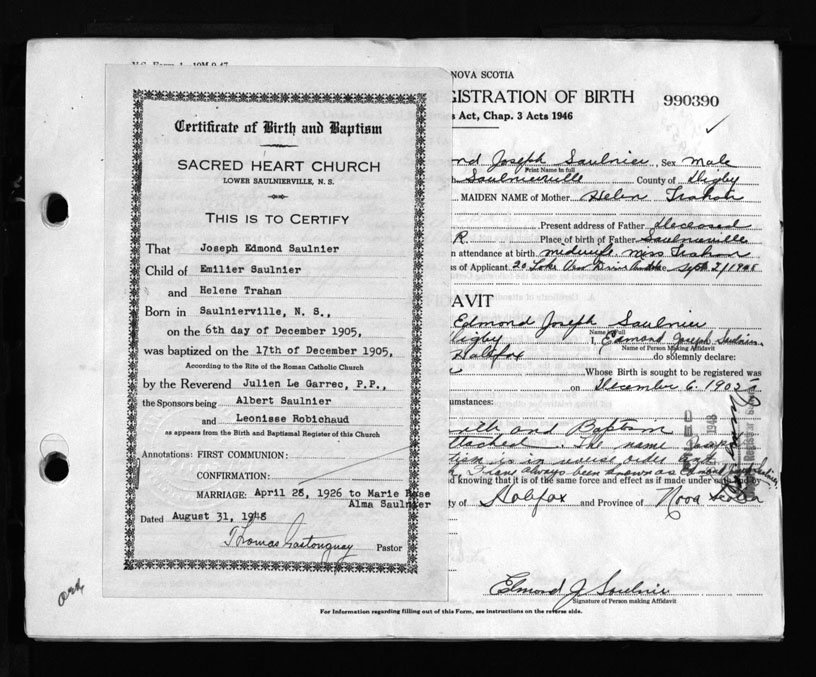 Certificate of Birth and Baptism
SACRED HEART CHURCH
LOWER SAULNIERVILLE, N. S.
THIS IS TO CERTIFY
That Joseph Edmond Saulnier
Child of Emilier Saulnier
and Helene Trahan
Born in Saulnierville, N. S.,
on the 6th day of December 1905,
was baptized on the 17th of December 1905,
According to the Rite of the Roman Catholic Church
by the Reverend Julien Le Garrec, P.P.,
the Sponsors being Albert Saulnier
and Leonisse Robichaud
as appears from the Birth and Baptismal Register of this Church
Annotations: FIRST COMMUNION:
CONFIRMATION:
MARRIAGE: April 28, 1926 to Marie Rose
Alma Saulnier
Dated August 31, 1948
Thomas Gastonguay Pastor
NOVA SCOTIA
GISTRATION OF BIRTH 990390
s Act, Chap. 3 Acts 1946
nd Joseph Saulnier, Sex Male
Print Name in full
Saulnierville County of Digby
MAIDEN NAME of Mother Helen Trahan
Present address of Father Deceased
R. Place of birth of Father Saulnierville
n attendance at birth midwife. Miss Trahan
ss of Applicant 20 Sept 2/1948
AVIT
Edmond Joseph Saulnier
Name in Full
Digby I, Edmond Joseph Saulnier
Name of Person Making Affidavit
Halifax do solemnly declare:
Whose Birth is sought to be registered was
on December 6 1905
cumstances:
and Baptism
The name
is in reverse order and
always been known as
d knowing that it is of the same force and effect as if made under oath and by
ty of Halifax and Province of Nova Scotia
Edmond J Saulnier
Signature of Person making Affidavit
For Information regarding filling out of this Form, see instructions on the reverse side.